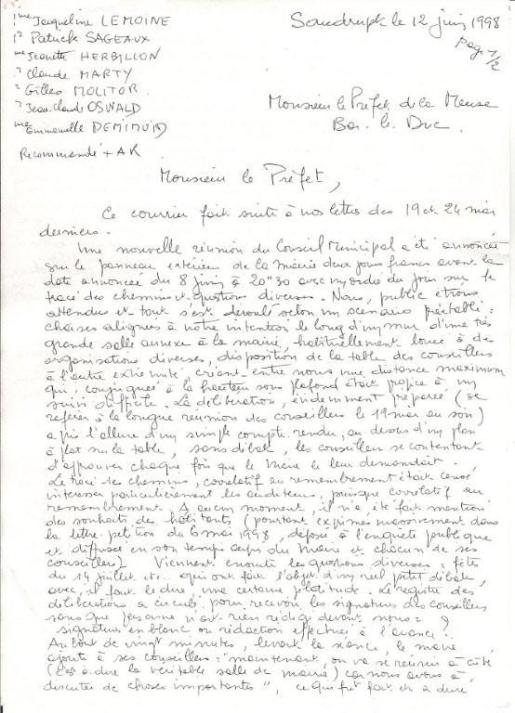 Mme Jacqueline LEMOINE
Mr Patrick SAGEAUX
Me Jeanette HERBILLON
Mr Claude MARTY
Mr Gilles MOLITOR
Mr Jean-Claude OSWALD
Me Emmanuelle
Recommandé + AR
Saudrupt le 12 juin 1998
page 1/2
Monsieur le Préfet de la Meuse
Bar. le Duc.
Monsieur le Préfet,
Ce courrier fait suite à nos lettres des 19 et 24 mai
derniers.
Une nouvelle réunion du Conseil Municipal a été annoncée
sur le panneau extérieur de la mairie deux jours francs avant la
date annoncée du 8 juin à 20h30 avec ordre du jour sur le
tracé des chemins et questions diverses. Nous, public étions
attendu et tout s'est déroulé selon un scénario :
chaises alignées à notre intention le long d'un mur d'une très
grande salle annexe à la mairie, habituellement louée à des
organisations diverses, disposition de la table des conseillers
à l'autre extrémité, créant entre nous une distance maximum
qui, conjuguée à la hauteur sous plafond était propice à un
suivi difficile. La délibération, évidemment préparée (se
référer à la longue réunion des conseillers le 19 mai au soir)
a pris l'allure d'un simple compte rendu, au dessus d'un plan
à plat sur la table, sans débat, les conseillers se contentant
d'approuver chaque fois que le maire le leur demandait.
Le tracé des chemins, corrélatif au remembrement était censé
intéresser particulièrement les auditeurs, puisque corrélatif au
remembrement. A aucun moment, il n'a été fait mention
des souhaits des habitants (pourtant exprimés massivement dans
la lettre pétition du 6 mai 1998, déposée à l'enquête publique
et diffusée en son temps auprès du Maire et chacun de ses
conseillers). Viennent ensuite les questions diverses : fêtes
du 14 juillet etc.. qui ont fait l'objet d'un réel petit débat,
avec, il faut le dire, une certaine platitude. Le registre des
délibérations a circulé pour recevoir les signatures des conseillers
sans que personne n'ait rien rédigé devant nous :
signature en blanc ou rédaction effectuée à l'avance ?
Au bout de vingt minutes, levant la séance, le maire
ajouta à ses conseillers : "maintenant, on va se réunir à côté
(c'est à dire la véritable salle de mairie) car nous avons à
discuter de choses importantes", ce qui fut fait et a duré